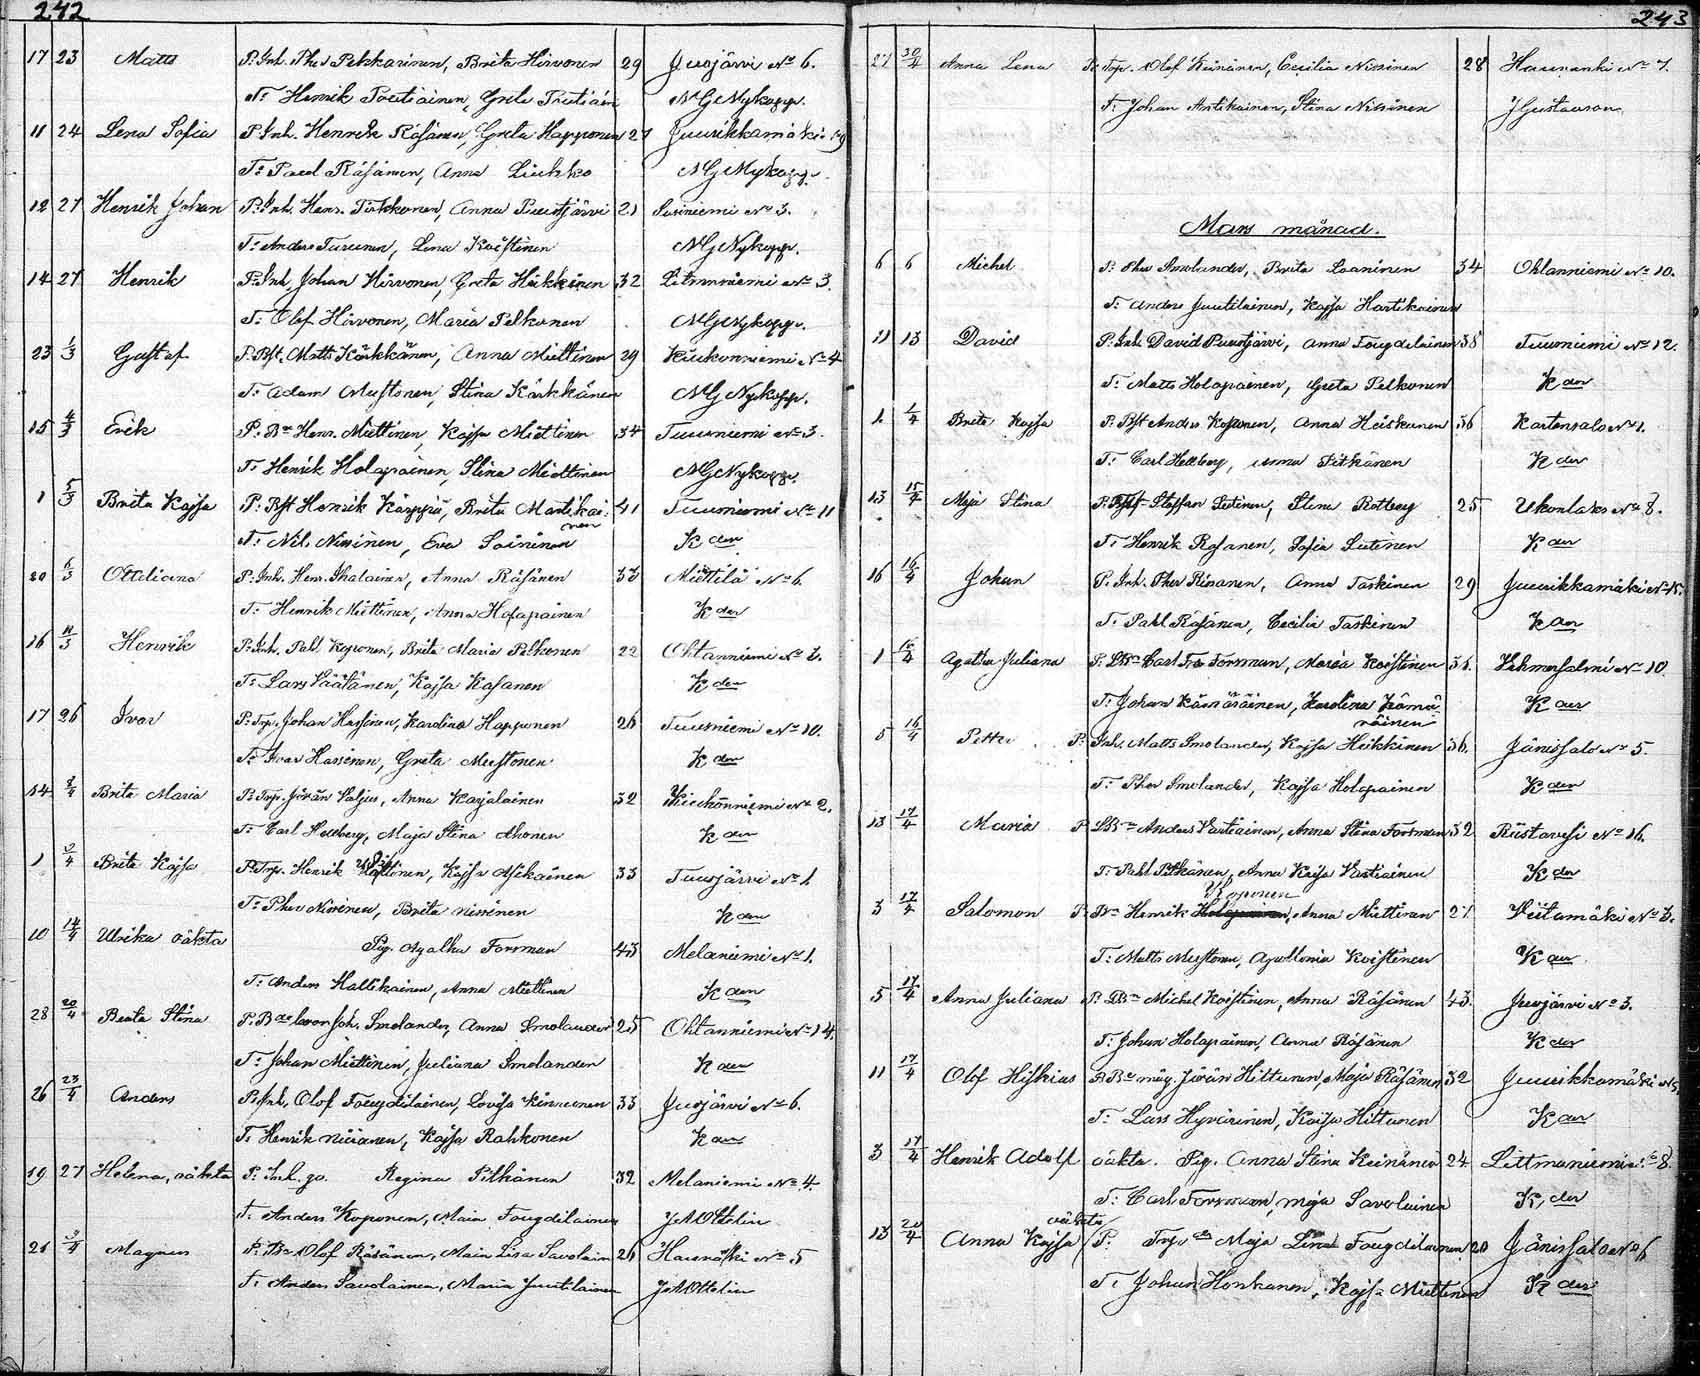 242
17 23 Matts P. Inh. Pher Pekkarinen, Brita Hirvonen 29 Juojärvi No 6.
T: Henrik Poutiainen, Greta Poutiain NGNykopp.
11 24 Lena Sofia P. Inh. Henrik Räsänen, Greta Happonen 27 Juurikkamäki 19
T: Paul Räsänen, Anna Liukko NGNykopp.
12 27 Henrik Johan P. Inh. Henr. Pirkkonen, Anna Puustjärvi 21 Susiniemi No 3.
T: Anders Turunen, Lena Koistinen NGNykopp.
14 27 Henrik P. Inh. Johan Hirvonen, Greta Heikkinen 32 Litmaniemi No 3.
T: Olof Hirvonen, Maria Pelkonen NGNykopp.
23 1/3 Gustaf P. Bst. Matts Kärkkänen, Anna Miettinen 29 Kiukonniemi No 4
T: Adam Mustonen, Stina Kärkkänen NGNykopp.
15 4/3 Erik P. Bde Henr. Miettinen, Kajsa Miettinen 34 Tuusniemi No 3.
T: Henrik Holapainen, Stina Miettinen NGNykopp.
1 5/3 Brita Kajsa P. Bst Henrik Karppi, Brita Martikainen 41 Tuusniemi No 11
T: Nils Nissinen, Eva Soininen K den
20 6/3 Ottiliana P. Inh. Henr. Ihalainen, Anna Räsänen 33 Miettilä No 6.
T: Henrik Miettinen, Anna Holapainen K den
16 11/3 Henrik P. Inh. Pahl Koponen, Brita Maria Pelkonen 22 Ohtanniemi No 3.
T: Lars Väätänen, Kajsa Kosanen K den
17 26 Ivar P. Trp. Johan Hassinen, Karolina Happonen 26 Tuusniemi No 10.
T: Ivar Hassinen, Greta Mustonen K den
14 8/4 Brita Maria P. Trp. Jöran Valjus, Anna Karjalainen 32 Kiukonniemi No 2.
T: Carl Hellberg, Maja Stina Ahonen K den
1 9/4 Brita Kajsa P. Trp. Henrik Miettinen, Kajsa Asikainen 33 Tuusjärvi No 1.
T: Pher Nissinen, Brita Nissinen K den
10 14/4 Ulrika oäkta Pig. Agatha Forsman 43 Melaniemi No 1.
T: Anders Hallikainen, Anna Miettinen K den
28 20/4 Beata Stina P. Bde Joh. Smolander, Anna Smolander 25 Ohtanniemi No 14.
T: Johan Miettinen, Juliana Smolander K den
26 23/4 Anders P. Inh. Olof Fougdilainen, Lovisa Kinnunen 33 Juojärvi No 6.
T: Henrik Niiranen, Kajsa Rahkonen K den
19 27 Helena, oäkta P. Inh. go. Regina Pitkänen 32 Melaniemi No 4.
T: Anders Koponen, Maria Fougdilainen JAOttelin
21 9/4 Magnus P. Bde Olof Räsänen, Maria Lisa Savolain 26 Hausmäki No 5
T: Anders Savolainen, Maria Juutilainen JAOttelin
243
27 30/4 Anna Lena P. Trp. Olof Keinänen, Cecilia Nissinen 28 No 7.
T: Johan Antikainen, Stina Nissinen JGustavson
Mars månad.
6 6 Michel P. Pher Smolander, Brita Laaninen 34 Ohtanniemi No 10.
T: Anders Juutilainen, Kajsa Hartikainen
11 13 David P. Inh. David Puustjärvi, Anna Fougdilainen 38 Tuusniemi No 12.
T: Matts Holapainen, Greta Pelkonen K den
1 1/4 Brita Kajsa P. Bst Anders Kosonen, Anna Heiskanen 36 Kartensalo No 1.
T: Carl Hellberg, Anna Pitkänen K den
13 15/4 Maja Stina P. Bst Staffan Lutinen, Stina Rotberg 25 Ukonlaks No 8.
T: Henrik Rosanen, Sofia Lutinen K den
16 16/4 Johan P. Inh. Pher Rosanen, Anna Taskinen 29 Juurikkamäki No 15.
T: Pahl Räsänen, Cecilia Taskinen K den
1 16/4 Agatha Juliana P. Bde Carl Forsman, Maria Koistinen 36 Vehmersalmi No 10.
T: Johan Kämäräinen, Karolina Kämäräinen K den
5 16/4 Petter P. Inh. Matts Smolander, Kajsa Heikkinen 36. Jänissalo No 5.
T: Pher Smolander, Kajsa Holapainen K den
13 17/4 Maria P. Bde Anders Vartiainen, Anna Stina Forsman 32 Riistavesi No 16.
T: Pahl Pitkänen, Anna Kajsa Vartiainen K den
Koponen
3 17/4 Salomon P. Bde Henrik Holapainen, Anna Miettinen 27 Viitamäki No 3.
T: Matts Mustonen, Apollonia Koistinen K den
5 17/4 Anna Juliana P. Bde Michel Koistinen, Anna Räsänen 43 Juojärvi No 3.
T: Johan Holapainen, Anna Räsänen K den
11 17/4 Olof Hiskias P. Bde måg. Jöran Hiltunen, Maja Räsänen 32 Juurikkamäki No 5,
T: Lars Hyvärinen, Kajsa Hiltunen K den
3 17/4 Henrik Adolf oäkta. Pig. Anna Stina Keinänen 24 Littmaniemi No 8.
T: Carl Forsman, Maja Savolainen K den
oäkta
13 20/4 Anna Kajsa P. Trp. Maja Lena Fougdilainen 20 Jänissalo No 6
T: Johan Honkanen, Kajsa Miettinen K den